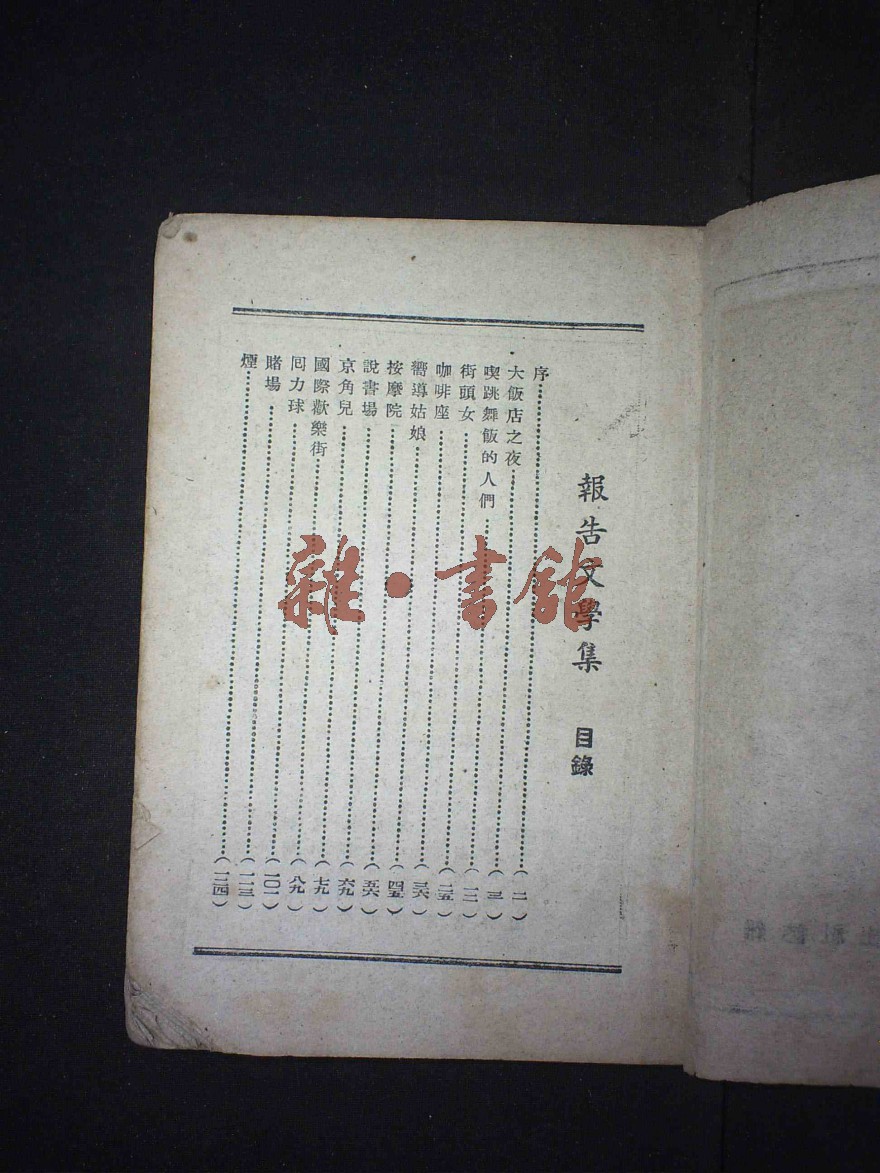 報告文學集 目錄
序……(一)
大飯店之夜……(三)
喫跳舞飯的人們……(一二)
街頭女……(二五)
咖啡座……(三六)
嚮導姑娘……(四五)
按摩院……(五六)
說書場……(六九)
京角兒……(七九)
國際歡樂街……(八九)
囘力球……(一〇一)
賭場……(一一三)
煙……(一二四)
雜·書館